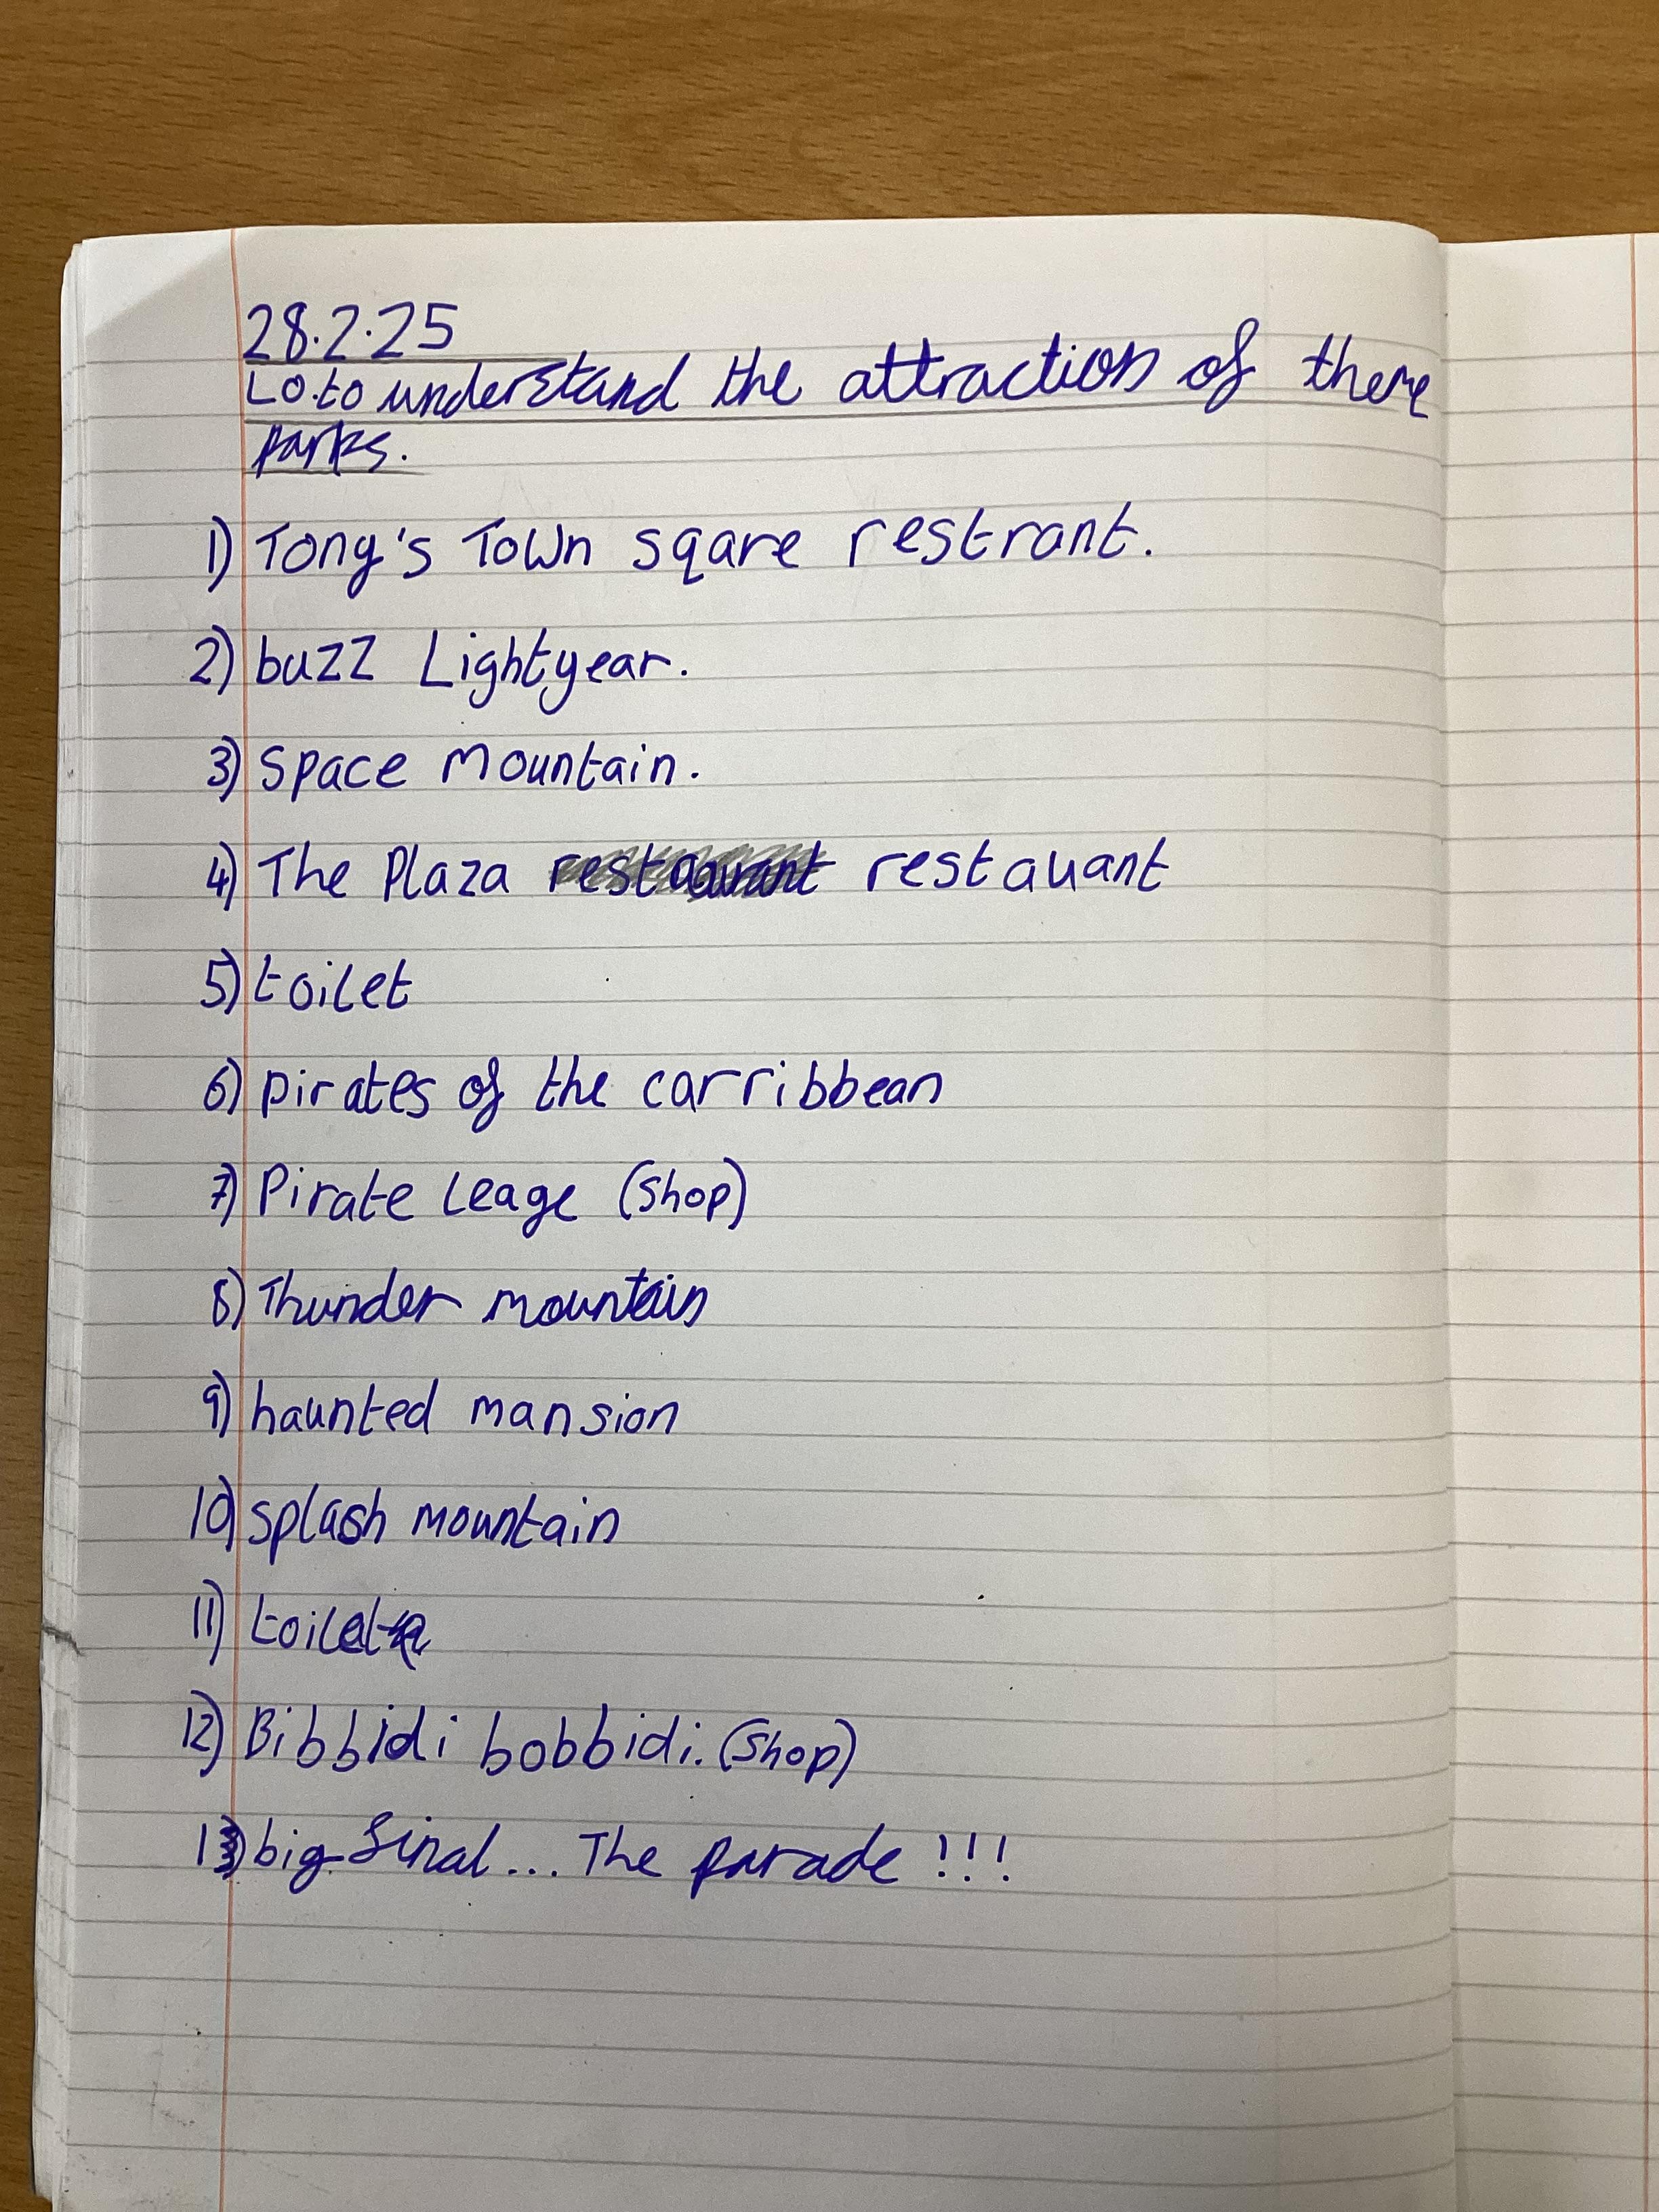 28.2.25
LO.to understand the attraction of theme
parks.
1) Tony's Town sqare restrant.
2) buzz Lightyear.
3) Space Mountain.
4) The Plaza restauant
5) toilet
6) pirates of the carribbean
7) Pirate Leage (shop)
8) Thunder mountain
9) haunted mansion
10) splash mountain
11) toilet
12) Bibbidi bobbidi. (shop)
13) big final... The parade !!!